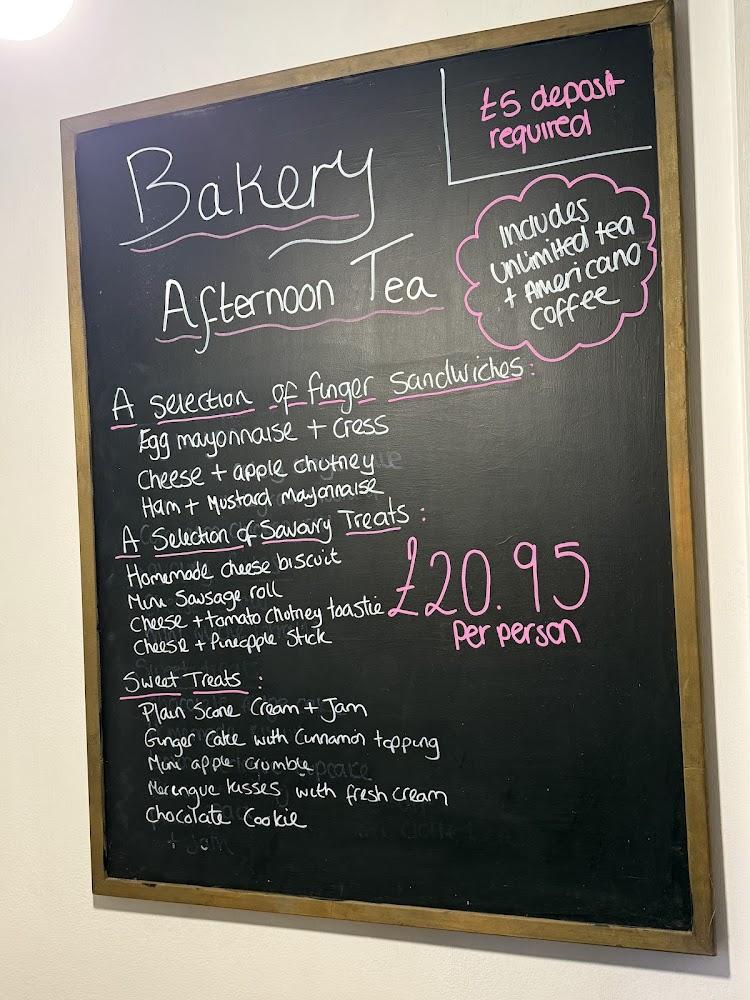 £5 deposit
required
Bakery
Afternoon Tea
Includes
unlimited tea
+ Americano
coffee
A selection of finger sandwiches:
Egg mayonnaise + cress
Cheese + apple chutney
Ham + Mustard mayonnaise
A Selection of Savoury Treats:
Homemade cheese biscuit
Mini Sausage roll
Cheese + tomato chutney toastie
Cheese + Pineapple Stick
£20.95
per person
Sweet Treats:
Plain Scone Cream + Jam
Ginger Cake with Cinnamon topping
Mini apple crumble
Merengue kisses with fresh cream
Chocolate Cookie
+ jam